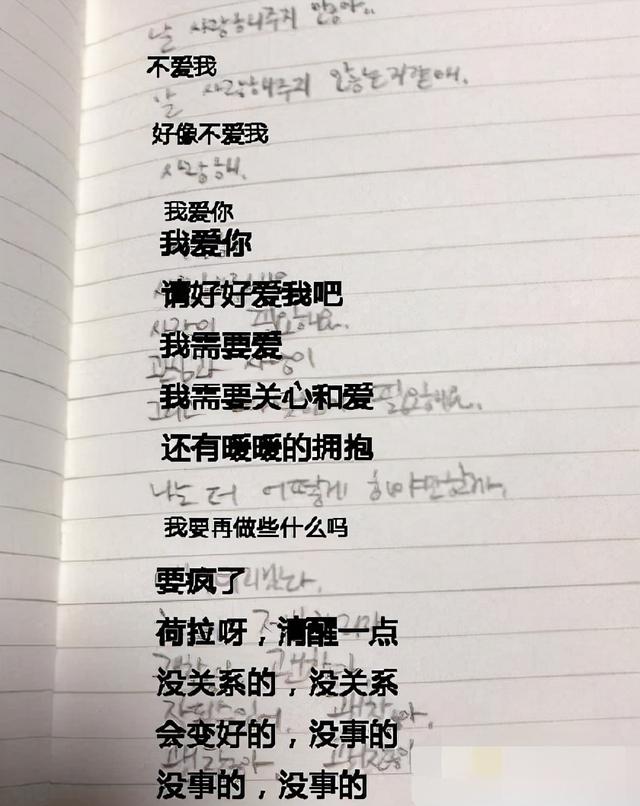 날 사랑해주지 않아..
不爱我
날 사랑해주지 않는거같애.
好像不爱我
사랑해.
我爱你
我爱你
请好好爱我吧
사랑이 필요해요.
我需要爱
사랑이
我需要关心和爱
필요해요.
还有暖暖的拥抱
나는 더 어떻게 해야만할까.
我要再做些什么吗
要疯了
荷拉呀，清醒一点
没关系的，没关系
会变好的，没事的
괜찮아
没事的，没事的